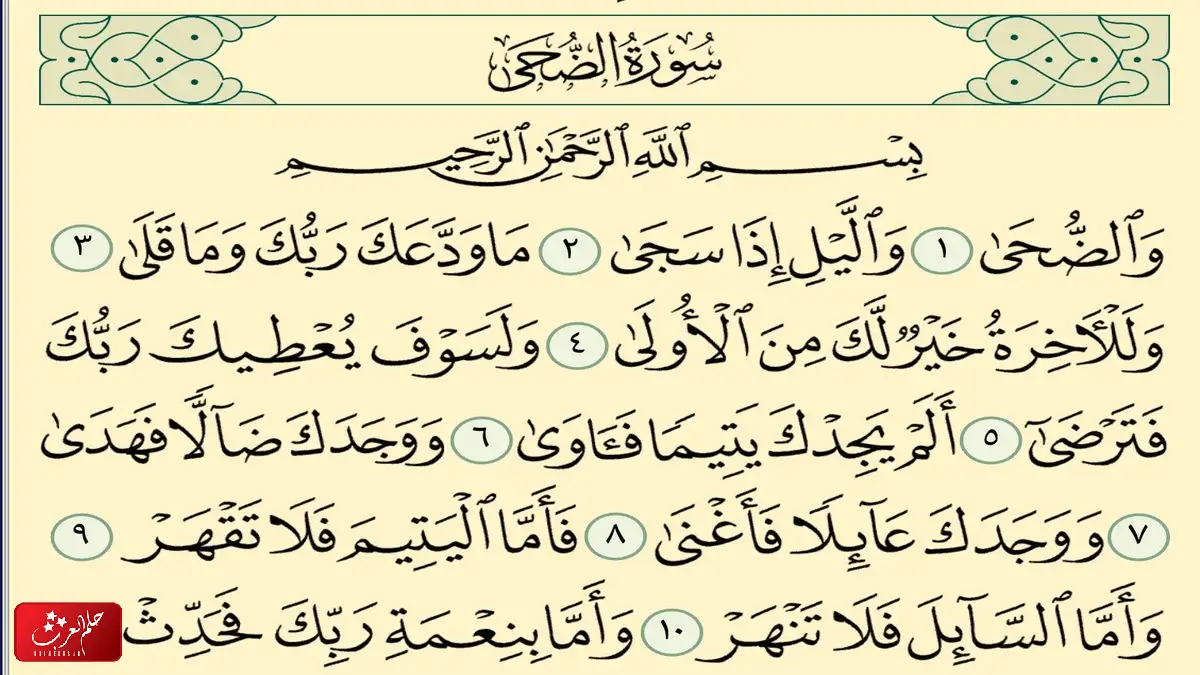 سُورَةُ الضُّحَىٰ
بِسْمِ ٱللَّهِ ٱلرَّحْمَٰنِ ٱلرَّحِيمِ
وَٱلضُّحَىٰ ١ وَٱلَّيْلِ إِذَا سَجَىٰ ٢ مَا وَدَّعَكَ رَبُّكَ وَمَا قَلَىٰ ٣
وَلَلْـَٔاخِرَةُ خَيْرٌ لَّكَ مِنَ ٱلْأُولَىٰ ٤ وَلَسَوْفَ يُعْطِيكَ رَبُّكَ
فَتَرْضَىٰٓ ٥ أَلَمْ يَجِدْكَ يَتِيمًا فَـَٔاوَىٰ ٦ وَوَجَدَكَ ضَآلًّا فَهَدَىٰ
٧ وَوَجَدَكَ عَآئِلًا فَأَغْنَىٰ ٨ فَأَمَّا ٱلْيَتِيمَ فَلَا تَقْهَرْ ٩
وَأَمَّا ٱلسَّآئِلَ فَلَا تَنْهَرْ ١٠ وَأَمَّا بِنِعْمَةِ رَبِّكَ فَحَدِّثْ
حلم العرب